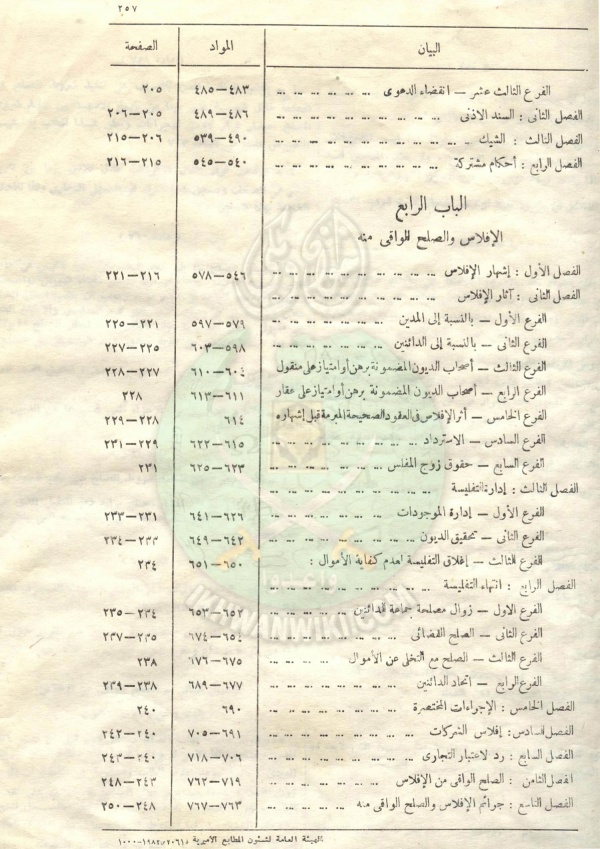 ٢٥٧
البيان المواد الصفحة
الفرع الثالث عشر — انقضاء الدعوى ... ... ... ... ... ... ٤٨٣—٤٨٥ ٢٠٥
الفصل الثانى : السند الاذنى ... ... ... ... ... ... ... ... ٤٨٦—٤٨٩ ٢٠٥—٢٠٦
الفصل الثالث : الشيك ... ... ... ... ... ... ... ... ٤٩٠—٥٣٩ ٢٠٦—٢١٥
الفصل الرابع : أحكام مشتركة ... ... ... ... ... ... ... ... ٥٤٠—٥٤٥ ٢١٥—٢١٦
الباب الرابع
الإفلاس والصلح الواقى منه
الفصل الأول : إشهار الإفلاس ... ... ... ... ... ... ... ... ٥٤٦—٥٧٨ ٢١٦—٢٢١
الفصل الثانى : آثار الإفلاس ... ... ... ... ... ... ... ...
الفرع الأول — بالنسبة إلى المدين ... ... ... ... ... ... ... ٥٧٩—٥٩٧ ٢٢١—٢٢٥
الفرع الثانى — بالنسبة إلى الدائنين ... ... ... ... ... ... ٥٩٨—٦٠٣ ٢٢٥—٢٢٧
الفرع الثالث — أصحاب الديون المضمونة برهن أو امتياز على منقول ٦٠٤—٦١٠ ٢٢٧—٢٢٨
الفرع الرابع — أصحاب الديون المضمونة برهن أو امتياز على عقار ٦١١—٦١٣ ٢٢٨
الفرع الخامس — أثر الإفلاس فى العقود الصحيحة المبرمة قبل إشهاره ٦١٤ ٢٢٨—٢٢٩
الفرع السادس — الاسترداد ... ... ... ... ... ... ... ٦١٥—٦٢٢ ٢٢٩—٢٣١
الفرع السابع — حقوق زوج المفلس ... ... ... ... ... ... ٦٢٣—٦٢٥ ٢٣١
الفصل الثالث : إدارة التفليسة ... ... ... ... ... ... ... ...
الفرع الأول — إدارة الموجودات ... ... ... ... ... ... ... ٦٢٦—٦٤١ ٢٣١—٢٣٣
الفرع الثانى — تحقيق الديون ... ... ... ... ... ... ... ٦٤٢—٦٤٩ ٢٣٣—٢٣٤
الفرع الثالث — إغلاق التفليسة لعدم كفاية الأموال : ٦٥٠—٦٥١ ٢٣٤
الفصل الرابع : انتهاء التفليسة ... ... ... ... ... ... ... ...
الفرع الاول — زوال مصلحة جماعة الدائنين ... ... ... ... ٦٥٢—٦٥٣ ٢٣٤—٢٣٥
الفرع الثانى — الصلح القضائى ... ... ... ... ... ... ... ٦٥٤—٦٧٤ ٢٣٥—٢٣٧
الفرع الثالث — الصلح مع التخلى عن الأموال ... ... ... ... ٦٧٥—٦٧٦ ٢٣٨
الفرع الرابع — اتحاد الدائنين ... ... ... ... ... ... ... ٦٧٧—٦٨٩ ٢٣٨—٢٣٩
الفصل الخامس : الإجراءات المختصرة ... ... ... ... ... ... ٦٩٠ ٢٤٠
الفصل السادس : إفلاس الشركات ... ... ... ... ... ... ... ٦٩١—٧٠٥ ٢٤٠—٢٤٢
الفصل السابع : رد الاعتبار التجارى ... ... ... ... ... ... ٧٠٦—٧١٨ ٢٤٠—٢٤٣
الفصل الثامن : الصلح الواقى من الإفلاس ... ... ... ... ... ٧١٩—٧٦٢ ٢٤٣—٢٤٨
الفصل التاسع : جرائم الإفلاس والصلح الواقى منه ... ... ... ٧٦٣—٧٦٧ ٢٤٨—٢٥٠
الهيئة العامة لشئون المطابع الأميرية
وأعدوا
IKHWANWIKI.COM